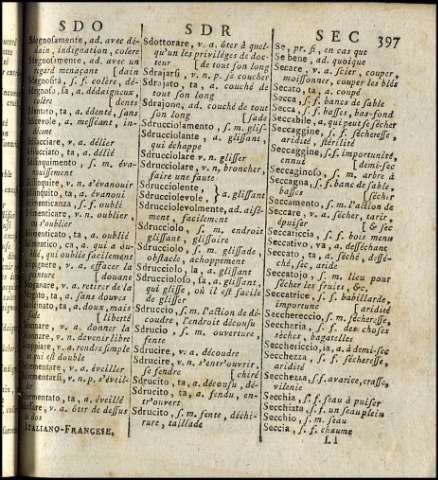 SDO
SDR
SEC
397
Sdegnosamente, ad. avec dé-
dain, indignation, colère
Sdegnosamente, ad. avec un
regard menaçant [dain
Sdegnosità, s. f. colère, dé-
Sdegnoso, sa, a. dédaigneux,
colère [dents
Sdentato, ta, a. édenté, sans
a. messéant, in-
décent
Sdilacciare, v. a. délier
Sdilacciato, ta, a. délié
Sdilinquimento, s. m. éva-
nouissement
Sdilinquire, v. n. s'évanouir
Sdilinquito, ta, a. évanoui
Sdimenticanza, s. f. oubli
Sdimenticare, v. n. oublier,
ou s'oublier
Sdimenticato, ta, a. oublié
ca, a. qui a ou-
blié, qui oublie facilement
v. a. effacer la
douane
Sdoganare, v. a. retirer de la
ta, a. sans douves
ta, a. doux, mais
fade [liberté
Sdonnare, v. a. donner la
Sdonnare, v. n. devenir libre
Sdoppiare, v. a. rendre simple
ce qui est double
v. n. p. s'éveil-
ler
Sdormentato, ta, a. éveillé
v. a. ôter de dessus
le dos
ITALIANO-FRANCESE,
Sdottorare, v. a. ôter à quel-
qu'un les privilèges de doc-
teur [de tout son long
Sdrajarsi, v. n. p. se coucher
Sdrajato, ta, a. couché de
tout son long
Sdrajone, ad. couché de tout
son long [sade
Sdrucciolamento, s. m. glis-
Sdrucciolante, a. glissant,
qui échappe
Sdrucciolare v. n. glisser
Sdrucciolare, v. n. broncher,
faire une faute
Sdrucciolente,
Sdrucciolevole, } a. glissant
Sdrucciolevolmente, ad. aisé-
ment, facilement
Sdrucciolo, s. m. endroit
glissant, glissoire
Sdrucciolo, s. m. glissade,
obstacle, achoppement
Sdrucciolo, la, a. glissant
Sdruccioloso, sa, a. glissant,
qui glisse, où il est facile
de glisser
Sdruccio, s. m. l'action de dé-
coudre, l'endroit décousu
Sdrucio, s. m. ouverture,
fente
Sdrucire, v. a. découdre
Sdrucire, v. n. s'entr'ouvrir,
se fendre [chiré
Sdrucito, ta, a. décousu, dé-
Sdrucito, ta, a. fendu, en-
tr'ouvert
Sdrucito, s. m. fente, déchi-
rure, taillade
Se, pr. si, en cas que
Se bene, ad. quoique
Secare, v. a. scier, couper,
moissonner, couper les bleds
Secato, ta, a. coupé
Secca, s. f. bancs de sable
Secca, s. f. basses, bas-fond
Seccabile, a. qui peut se sécher
Seccaggine, s. f. sécheresse,
aridité, stérilité
Seccaggine, s. f. importunité,
ennui [demi-sec
Seccaginoso, s. m. arbre à
Seccagna, s. f. banc de sable,
basses [sécher
Seccamento, s. m. l'action de
Seccare, v. a. sécher, tarir,
épuiser [& sec
Seccariccia, s. f. bois menu
Seccativo, va, a. desséchant
Seccato, ta, a. séché, dessé-
ché, sec, aride
Seccatojo, s. m. lieu pour
sécher les fruits, &c.
Seccatrice, s. f. babillarde,
importune [aridité
Secchereccio, s. m. sécheresse,
Seccheria, s. f. des choses
sèches, bagatelles
Secchericcio, ia, a. à demi-sec
Secchezza, s. f. sécheresse,
aridité
Secchezza, s. f. avarice, crasse,
vilenie
Secchia, s. f. seau à puiser
Secchiata, s. f. un seau plein
Secchio, s. m. seau
Seccia, s. f. chaume
Ll